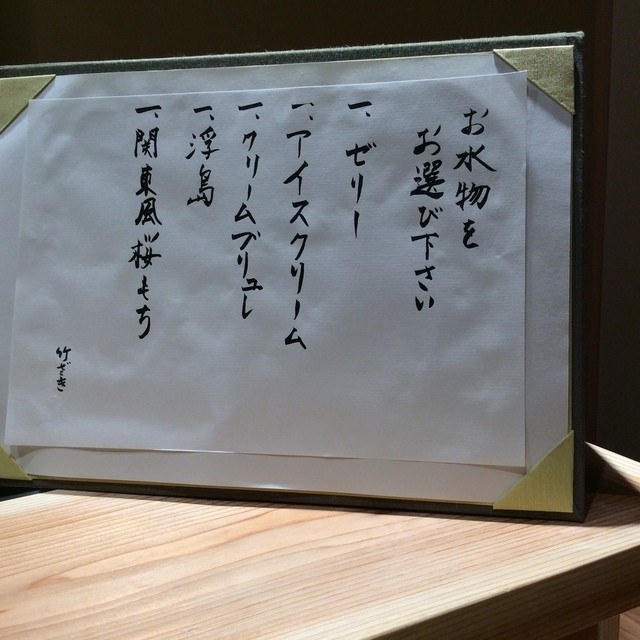 お水物を
お選び下さい
一、ゼリー
一、アイスクリーム
一、クリームブリュレ
一、浮島
一、関東風桜もち
竹ざき